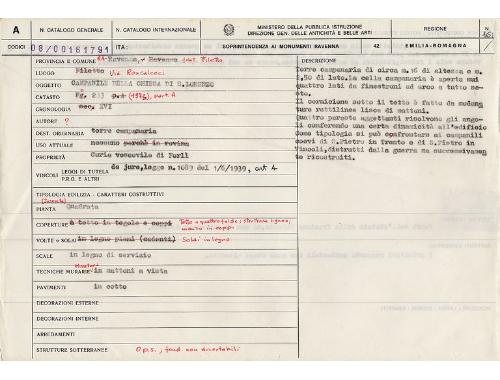 A
N. CATALOGO GENERALE
N. CATALOGO INTERNAZIONALE
MINISTERO DELLA PUBBLICA ISTRUZIONE
DIREZIONE GEN. DELLE ANTICHITÀ E BELLE ARTI
REGIONE
N.
CODICI
08/00161791
ITA:
SOPRINTENDENZA AI MONUMENTI RAVENNA
42
EMILIA-ROMAGNA
PROVINCIA E COMUNE: RA-Ravenna, Ravenna Filetto
LUOGO Filetto Via Roncalceci
OGGETTO CAMPANILE DELLA CHIESA DI S.LORENZO
CATASTO Fg. 233 part. (1973) part. A
CRONOLOGIA sec. XVI
AUTORE ?
DEST. ORIGINARIA torre campanaria
USO ATTUALE nessuno perchè in rovina
PROPRIETÀ Curia vescovile di Forlì
VINCOLI LEGGI DI TUTELA de jure, legge n. 1089 del 1/6/1939, art 4
P.R.G. E ALTRI
TIPOLOGIA EDILIZIA - CARATTERI COSTRUTTIVI
PIANTA Quadrata
COPERTURE a tetto in tegole e coppi Tetto a quattro falde; struttura lignea,
manto in coppi
VOLTE o SOLAI in legno piani (cadenti) Solai in legno
SCALE in legno di servizio
TECNICHE MURARIE in mattoni a vista
PAVIMENTI in cotto
DECORAZIONI ESTERNE
DECORAZIONI INTERNE
ARREDAMENTI
STRUTTURE SOTTERRANEE Ops.; fond. non accertabili
DESCRIZIONE
Torre campanaria di circa m.16 di altezza e m.
2,50 di lato. La cella campanaria è aperta sui
quattro lati da finestroni ad arco a tutto se-
sto.
Il cornicione sotto il tetto è fatto da modana-
ture rettilinee lisce di mattoni.
Quattro paraste aggettanti rivolgono gli ango-
li conferendo una certa dinamicità all'edificio
Come tipologia si può confrontare ai campanili
coevi di S.Pietro in Trento e di S.Pietro in
Vincoli, distrutti dalla guerra ma successivamen-
te ricostruiti.